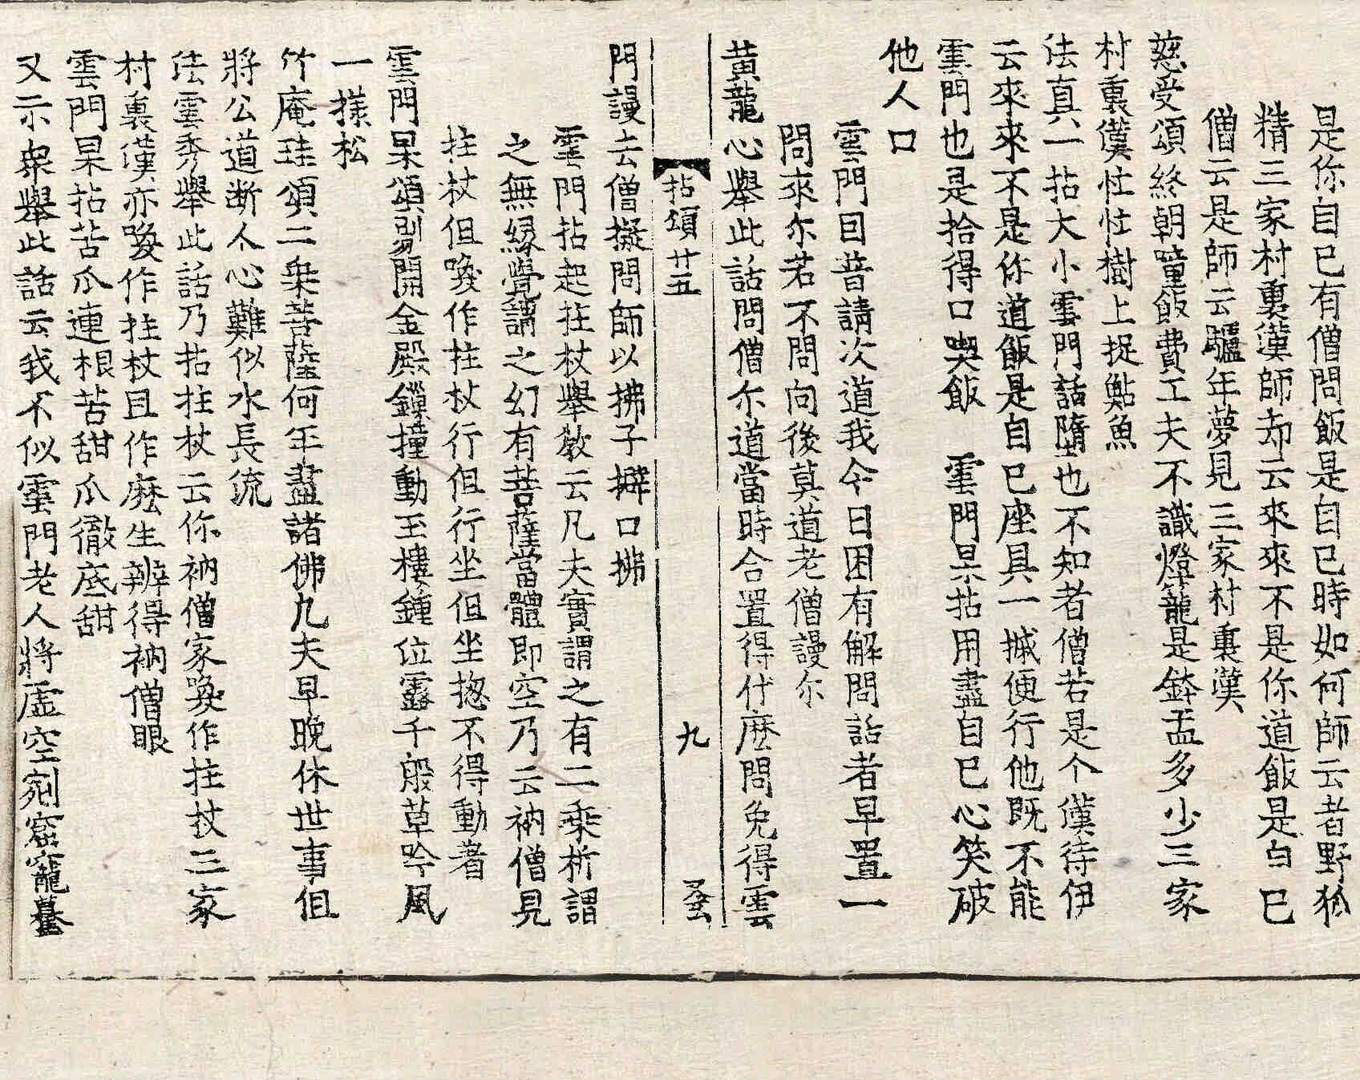 是你自己有僧問飯是自己時如何師云者野狐
精三家村裏漢師却云來來不是你道飯是自己
僧云是師云驢年夢見三家村裏漢
慈受頌終朝噇飯費工夫不識燈籠是鉢盂多少三家
村裏漢忙忙樹上捉鮎魚
法真一拈大小雲門話墮也不知者僧若是个漢待伊
云來來不是你道飯是自己座具一摵便行他既不能
雲門也是拾得口喫飯　雲門杲拈用盡自己心笑破
他人口
雲門因昔請次道我今日困有解問話者早置一
問來尓若不問向後莫道老僧謾尓
黃龍心舉此話問僧尓道當時合置得什麽問免得雲
拈頌廿五　九
門謾去僧擬問師以拂子擗口拂
雲門拈起拄杖舉教云凡夫實謂之有二乘析謂
之無緣覺謂之幻有菩薩當體即空乃云衲僧見
拄杖但喚作拄杖行但行坐但坐摠不得動著
雲門杲頌剔開金殿鏁撞動玉樓鍾位露千般草吟風
一樣松
竹庵珪頌二乘菩薩何年盡諸佛凡夫早晚休世事但
將公道断人心難似水長流
法雲秀舉此話乃拈拄杖云你衲僧家喚作拄杖三家
村裏漢亦喚作拄杖且作麽生辨得衲僧眼
雲門杲拈苦瓜連根苦甜瓜徹底甜
又示衆舉此話云我不似雲門老人將虛空剜窟竉驀